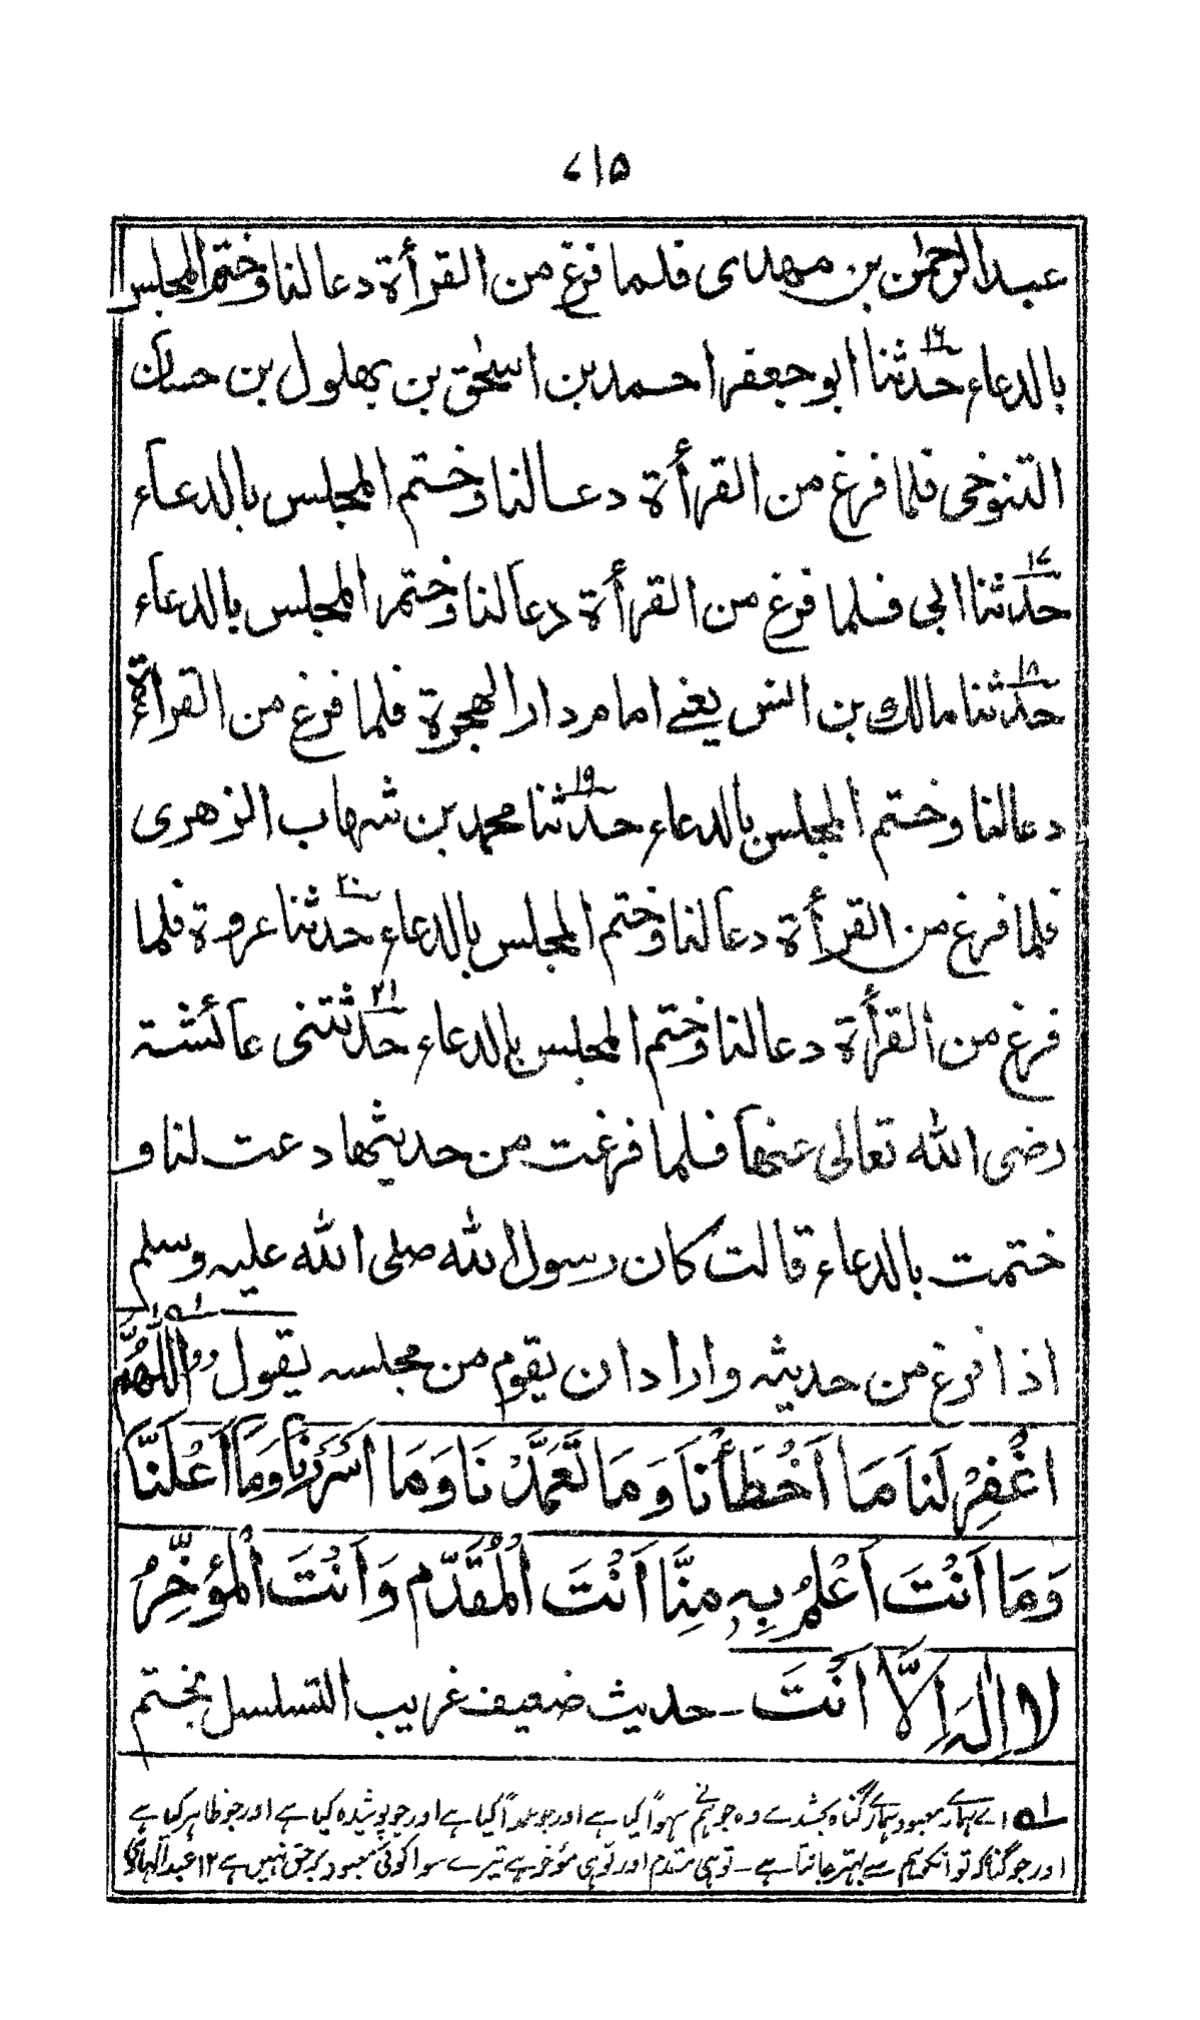 ۷۱۵
عبد الرحمٰن بن مهدى فلما فرغ من القرأة دعا لنا وختم المجلس
بالدعاء حدثنا<sup>۱۶</sup> ابو جعفر احمد بن اسحٰق بن بهلول بن حسان
التنوخى فلما فرغ من القرأة دعا لنا وختم المجلس بالدعاء
حدثنا<sup>۱۷</sup> ابى فلما فرغ من القرأة دعا لنا وختم المجلس بالدعاء
حدثنا<sup>۱۸</sup> مالك بن انس يعنے امام دار الهجرة فلما فرغ من القرأة
دعا لنا وختم المجلس بالدعاء حدثنا<sup>۱۹</sup> محمد بن شهاب الزهرى
فلما فرغ من القرأة دعا لنا وختم المجلس بالدعاء حدثنا<sup>۲۰</sup> عروة فلما
فرغ من القرأة دعا لنا وختم المجلس بالدعاء حدثتنى<sup>۲۱</sup> عائشة
رضى الله تعالى عنها فلما فرغت من حديثها دعت لنا و
ختمت بالدعاء قالت كان رسول الله صلى الله عليه وسلم
اذا فرغ من حديثه واراد ان يقوم من مجلسه يقول اَللّٰهُمَّ<sup>۱ھ</sup>
اغْفِرْ لَنَا مَا اَخْطَأْنَا وَمَا تَعَمَّدْنَا وَمَا اَسْرَرْنَا وَمَا اَعْلَنَّا
وَمَا اَنْتَ اَعْلَمُ بِهٖ مِنَّا اَنْتَ الْمُقَدِّم وَاَنْتَ الْمُؤَخِّرُ
لَا اِلٰهَ اِلَّا اَنْتَ ـ حديث ضعيف غريب التسلسل بختم
۱ھ اے ہمارے معبود ہمارے گناہ بخشدے وہ جو ہم نے سہواً کیا ہے اور جو عمداً کیا ہے اور جو پوشیدہ کیا ہے اور جو ظاہر کیا ہے
اور جو گناہ کہ تو انکو ہم سے بہتر جانتا ہے ـ تو ہی مقدم اور تو ہی مؤخر ہے تیرے سوا کوئی معبود برحق نہیں ہے ۱۲ عبد الہادی